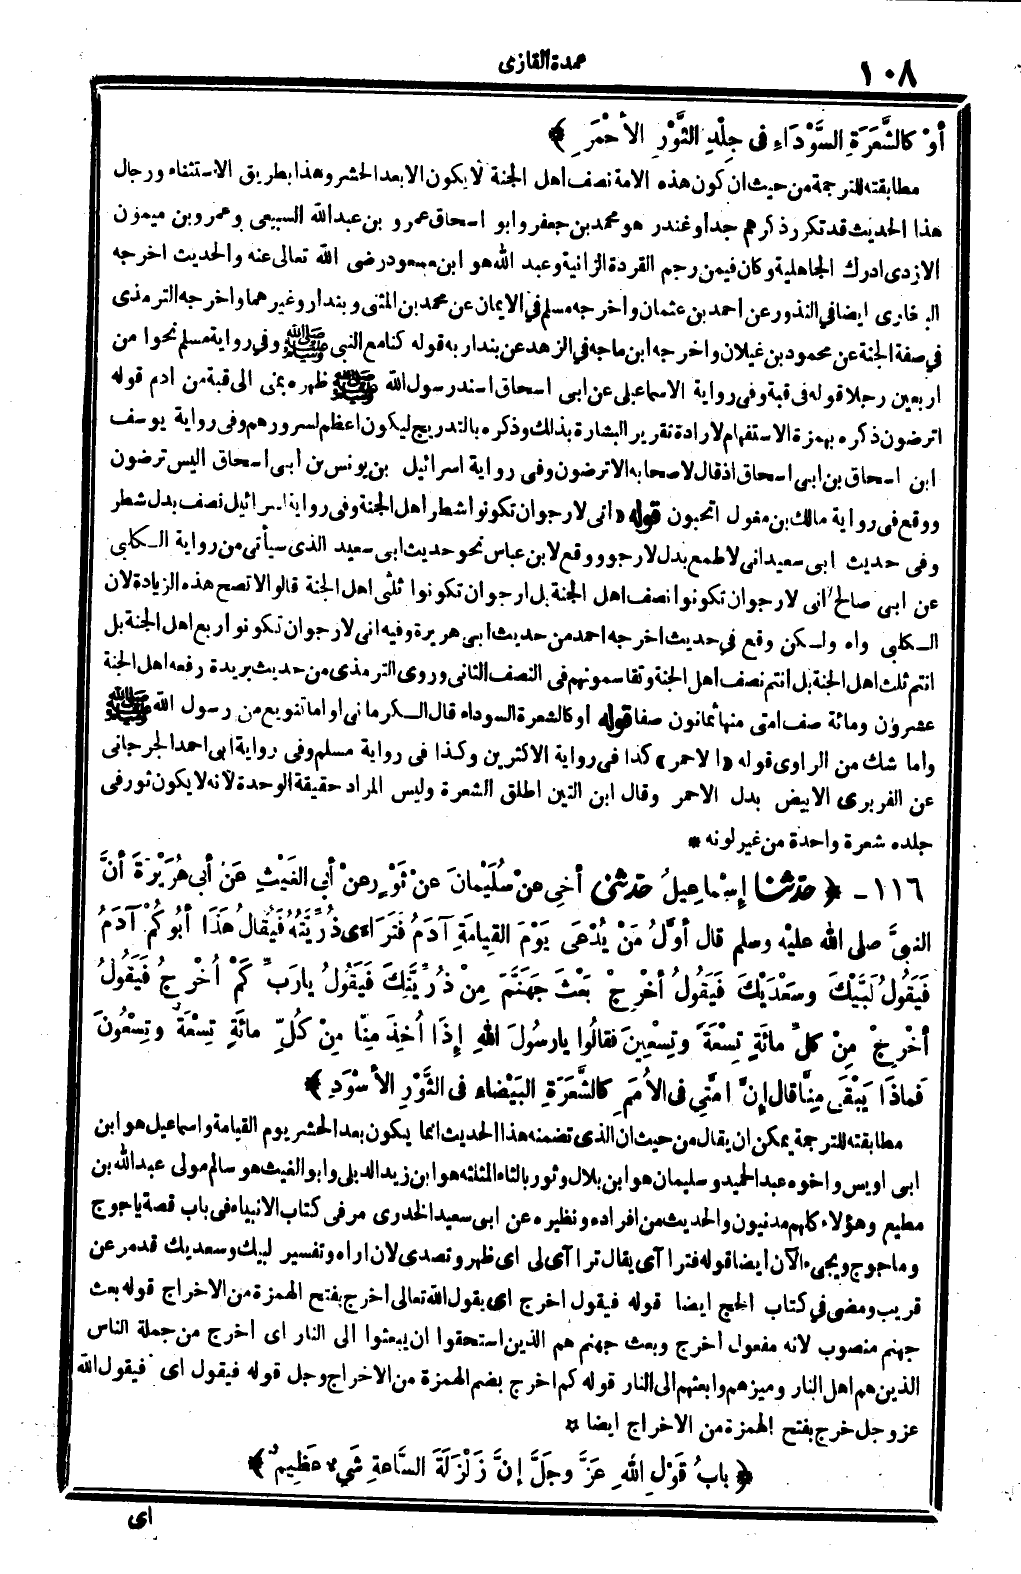 ١٠٨
عمدة القارى
أوْ كالشَّعَرَةِ السَّوْدَاءِ فى جِلْدِ الثَّوْرِ الأحْمَرِ ﴾
مطابقته للترجمة من حيث ان كون هذه الامة نصف اهل الجنة لا يكون الابعد الحشر وهذا بطريق الاستثناء ورجال
هذا الحديث قد تكرر ذكرهم جدا وغندر هو محمد بن جعفر وابو اسحاق عمرو بن عبدالله السبيعى وعمرو بن ميمون
الازدى ادرك الجاهلية وكان فيمن رجم القردة الزانية وعبد الله هو ابن مسعود رضى الله تعالى عنه والحديث اخرجه
البخارى ايضا فى النذور عن احمد بن عثمان واخرجه مسلم في الايمان عن محمد بن المثنى وبندار وغيرهما واخرجه الترمذى
في صفة الجنة عن محمود بن غيلان واخرجه ابن ماجه في الزهد عن بندار به قوله كنا مع النبى ﷺ وفي رواية مسلم نحوا من
اربعين رجلا قوله فى قبة وفى رواية الاسماعيلى عن ابى اسحاق اسند رسول الله ﷺ ظهره بمنى الى قبة من ادم قوله
اترضون ذكره بهمزة الاستفهام لارادة تقرير البشارة بذلك وذكره بالتدريج ليكون اعظم لسرورهم وفى رواية يوسف
ابن اسحاق بن ابى اسحاق اذ قال لاصحابه الاترضون وفى رواية اسرائيل بن يونس بن أبى اسحاق اليس ترضون
ووقع فى رواية مالك بن مغول اتحبون قوله «انى لارجو ان تكونوا شطر أهل الجنة وفى رواية اسرائيل نصف بدل شطر
وفى حديث ابى سعيد انى لاطمع بدل لارجو ووقع لابن عباس نحو حديث ابى سعيد الذى سيأتى من رواية الكلبى
عن ابى صالح انى لارجو ان تكونوا نصف اهل الجنة بل ارجو ان تكونوا ثلثى اهل الجنة قالوا لاتصح هذه الزيادة لان
الكلبى واه ولكن وقع في حديث اخرجه احمد من حديث ابى هريرة وفيه انى لارجو ان تكونوا ربع اهل الجنة بل
انتم ثلث اهل الجنة بل انتم نصف اهل الجنة وتقاسمونهم فى النصف الثانى وروى الترمذى من حديث بريدة رفعه اهل الجنة
عشرون ومائة صف امتى منها ثمانون صفا قوله او كالشعرة السوداء قال الكرمانى او اما تنويع من رسول الله ﷺ
واما شك من الراوى قوله «الاحمر» كذا فى رواية الاكثرين وكذا فى رواية مسلم وفى رواية ابى احمد الجرجانى
عن الفربرى الابيض بدل الاحمر وقال ابن التين اطلق الشعرة وليس المراد حقيقة الوحدة لانه لا يكون ثور فى
جلده شعرة واحدة من غير لونه *
١١٦ - ﴿ حدثنا إسْماعِيلُ حدثنى أخِي عنْ سُلَيْمانَ عنْ ثَوْرٍ عنْ أبِي الغَيْثِ عَنْ أبِى هُرَيْرَةَ أنَّ
النبىَّ صلى الله عليْه وسلم قال أوَّلُ مَنْ يُدْعَى يَوْمَ القِيامَةِ آدَمُ فَتَرَاءَى ذُرِّيَّتُهُ فَيُقالُ هَذَا أبُوكُمْ آدَمُ
فَيَقُولُ لَبَّيْكَ وسَعْدَيْكَ فَيَقُولُ أخْرِجْ بَعْثَ جَهَنَّمَ مِنْ ذُرِّيَّتِكَ فَيَقُولُ يارَبِّ كَمْ أُخْرِجُ فَيَقُولُ
أخْرِجْ مِنْ كلِّ مائَةٍ تِسْعَةً وتِسْعِينَ فقالُوا يارسُولَ اللهِ إذَا أُخِذَ مِنَّا مِنْ كُلِّ مائَةٍ تِسْعَةٌ وتِسْعُونَ
فَماذَا يَبْقَى مِنَّا قال إنَّ أمَّتِي فى الأُمَمِ كالشَّعَرَةِ البَيْضاءِ فى الثَّوْرِ الأسْوَدِ ﴾
مطابقته للترجمة يمكن ان يقال من حيث ان الذى تضمنه هذا الحديث انما يكون بعد الحشر يوم القيامة واسماعيل هو ابن
ابى اويس واخوه عبد الحميد وسليمان هو ابن بلال وثور بالثاء المثلثه هو ابن زيد الديلى وابو الغيث هو سالم مولى عبدالله بن
مطيع وهؤلاء كلهم مدنيون والحديث من افراده ونظيره عن ابى سعيد الخدرى مر فى كتاب الانبياء فى باب قصة ياجوج
وماجوج ويجىء الآن أيضا قوله فتراآى يقال تراآى لى اى ظهر وتصدى لان اراه وتفسير لبيك وسعديك قد مر عن
قريب ومضى في كتاب الحج ايضا قوله فيقول اخرج اى يقول الله تعالى اخرج بفتح الهمزة من الاخراج قوله بعث
جهنم منصوب لانه مفعول أخرج وبعث جهنم هم الذين استحقوا ان يبعثوا الى النار اى اخرج من جملة الناس
الذين هم اهل النار وميزهم وابعثهم الى النار قوله كم اخرج بضم الهمزة من الاخراج وجل قوله فيقول اى فيقول الله
عزوجل خرج بفتح الهمزة من الاخراج ايضا *
﴿ بابُ قَوْلِ اللهِ عَزَّ وجَلَّ إنَّ زَلْزَلَةَ السَّاعَةِ شَيْءٌ عَظِيمٌ ﴾
اى